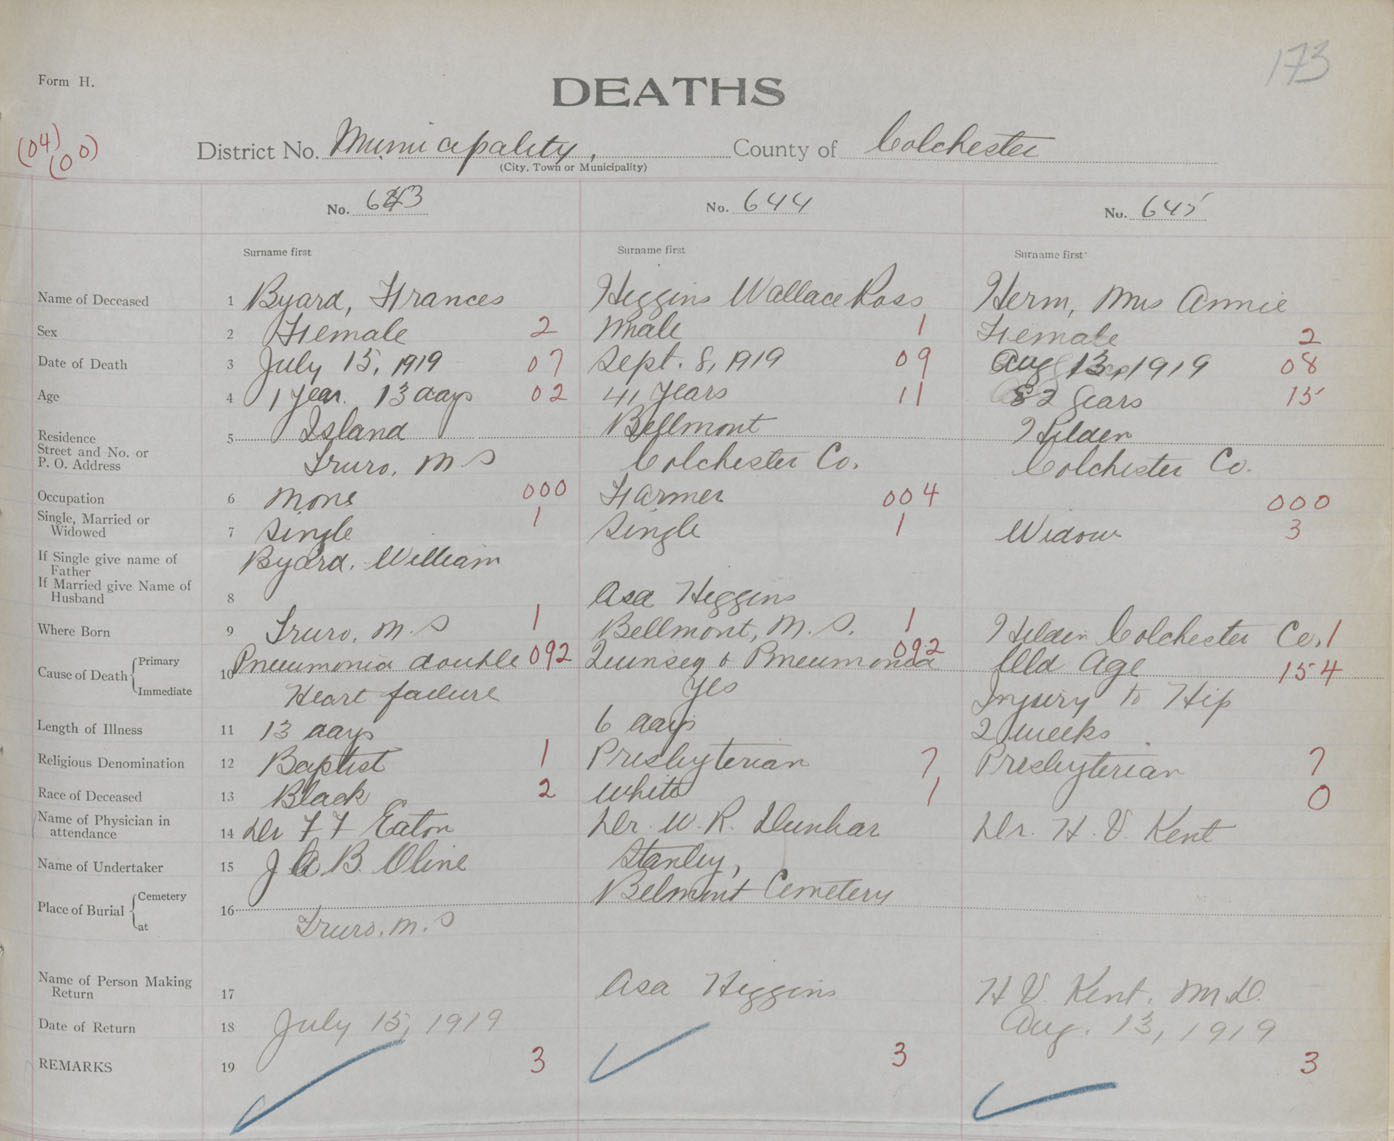 173
Form H.
DEATHS
(04)
(00)
District No. Municipality, County of Colchester
(City, Town or Municipality)
No. 643 No. 644 No. 645
Surname first Surname first Surname first
Name of Deceased 1 Byard, Frances Higgins Wallace Ross Herm, Mrs Annie
Sex 2 Female 2 Male 1 Female 2
Date of Death 3 July 15, 1919 07 Sept. 8, 1919 09 Aug 13, 1919 08
Age 4 1 year. 13 days 02 41 years 11 82 years 15
Residence 5 Island Bellmont Hilden
Street and No. or
P. O. Address Truro, N S Colchester Co. Colchester Co.
Occupation 6 None 000 Farmer 004 000
Single, Married or
Widowed 7 Single 1 Single 1 Widow 3
If Single give name of
Father Byard, William
If Married give Name of
Husband 8 Asa Higgins
Where Born 9 Truro, N. S 1 Bellmont, N. S. 1 Hilden Colchester Co. 1
Cause of Death Primary 10 Pneumonia double 092 Quinsey & Pneumonia 092 Old Age 154
Immediate Heart failure Yes Injury to Hip
Length of Illness 11 13 days 6 days 2 weeks
Religious Denomination 12 Baptist 1 Presbyterian 7 Presbyterian 7
Race of Deceased 13 Black 2 White 1 0
Name of Physician in
attendance 14 Dr F F Eaton Dr. W. R. Dunbar Dr. H. V. Kent
Name of Undertaker 15 J A B. Cline Stanley,
Place of Burial Cemetery 16 Belmont Cemetery
at Truro, N. S
Name of Person Making
Return 17 Asa Higgins H V. Kent, M.D.
Date of Return 18 July 15, 1919 Aug. 13, 1919
REMARKS 19 3 3 3